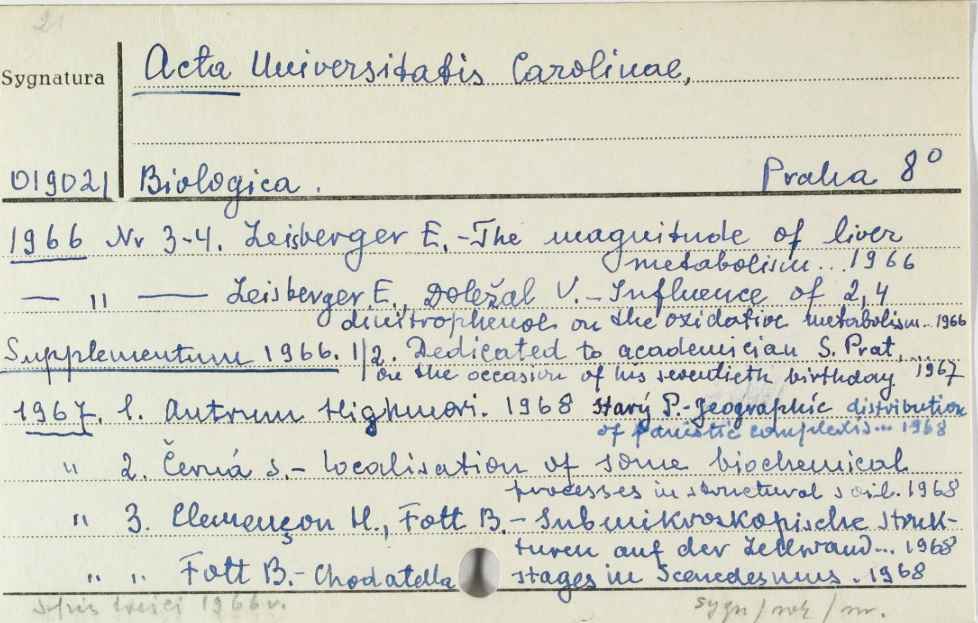 21
Sygnatura
Acta Universitatis Carolinae,
019021
Biologica.
Praha 8°
1966 Nr 3-4. Leisberger E.-The magnitude of liver
metabolism...1966
— " — Leisberger E., Doležal V.-Influence of 2,4
dinitrophenol on the oxidative metabolism..1966
Supplementum 1966. 1/2. Dedicated to academician S. Prat,...
on the occasion of his seventieth birthday. 1967
1967. 1. Antrum Highmori. 1968 Starý P.-Geographic distribution
of complexis... 1968
" 2. Černá S.- Localisation of some biochemical
processes in structural soil. 1968
" 3. Clemençon H., Fott B.-Submikroskopische Struk-
turen auf der Zellwand... 1968
" " Fott B.- Chodatella stages in Scenedesmus. 1968
Spis treści 1966 r.
sygn/rok/nr.